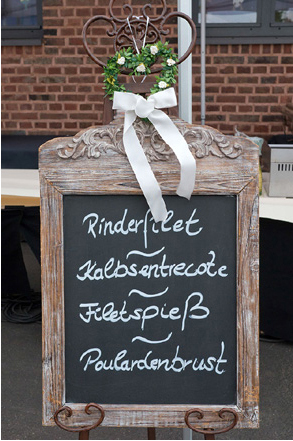 Rinderfilet
Kalbsentrecote
Filetspieß
Poulardenbrust